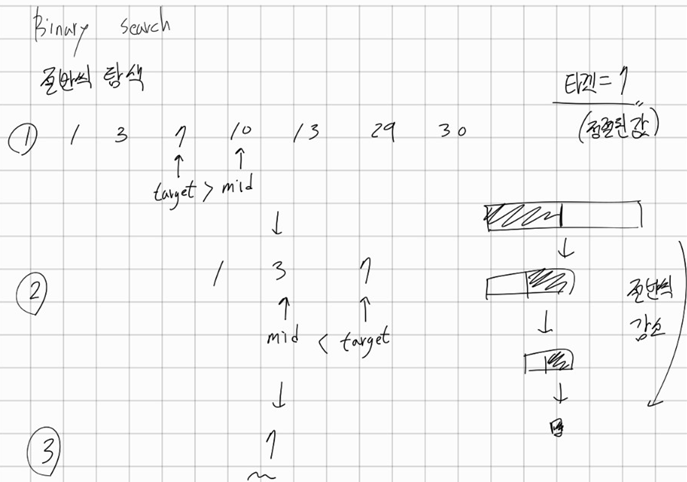 Binary search
절반씩 탐색
타겟 = 7
(정렬된 값)
① 1 3 7 10 13 29 30
target > mid
② 1 3 7
mid < target
절반씩
감소
③ 7